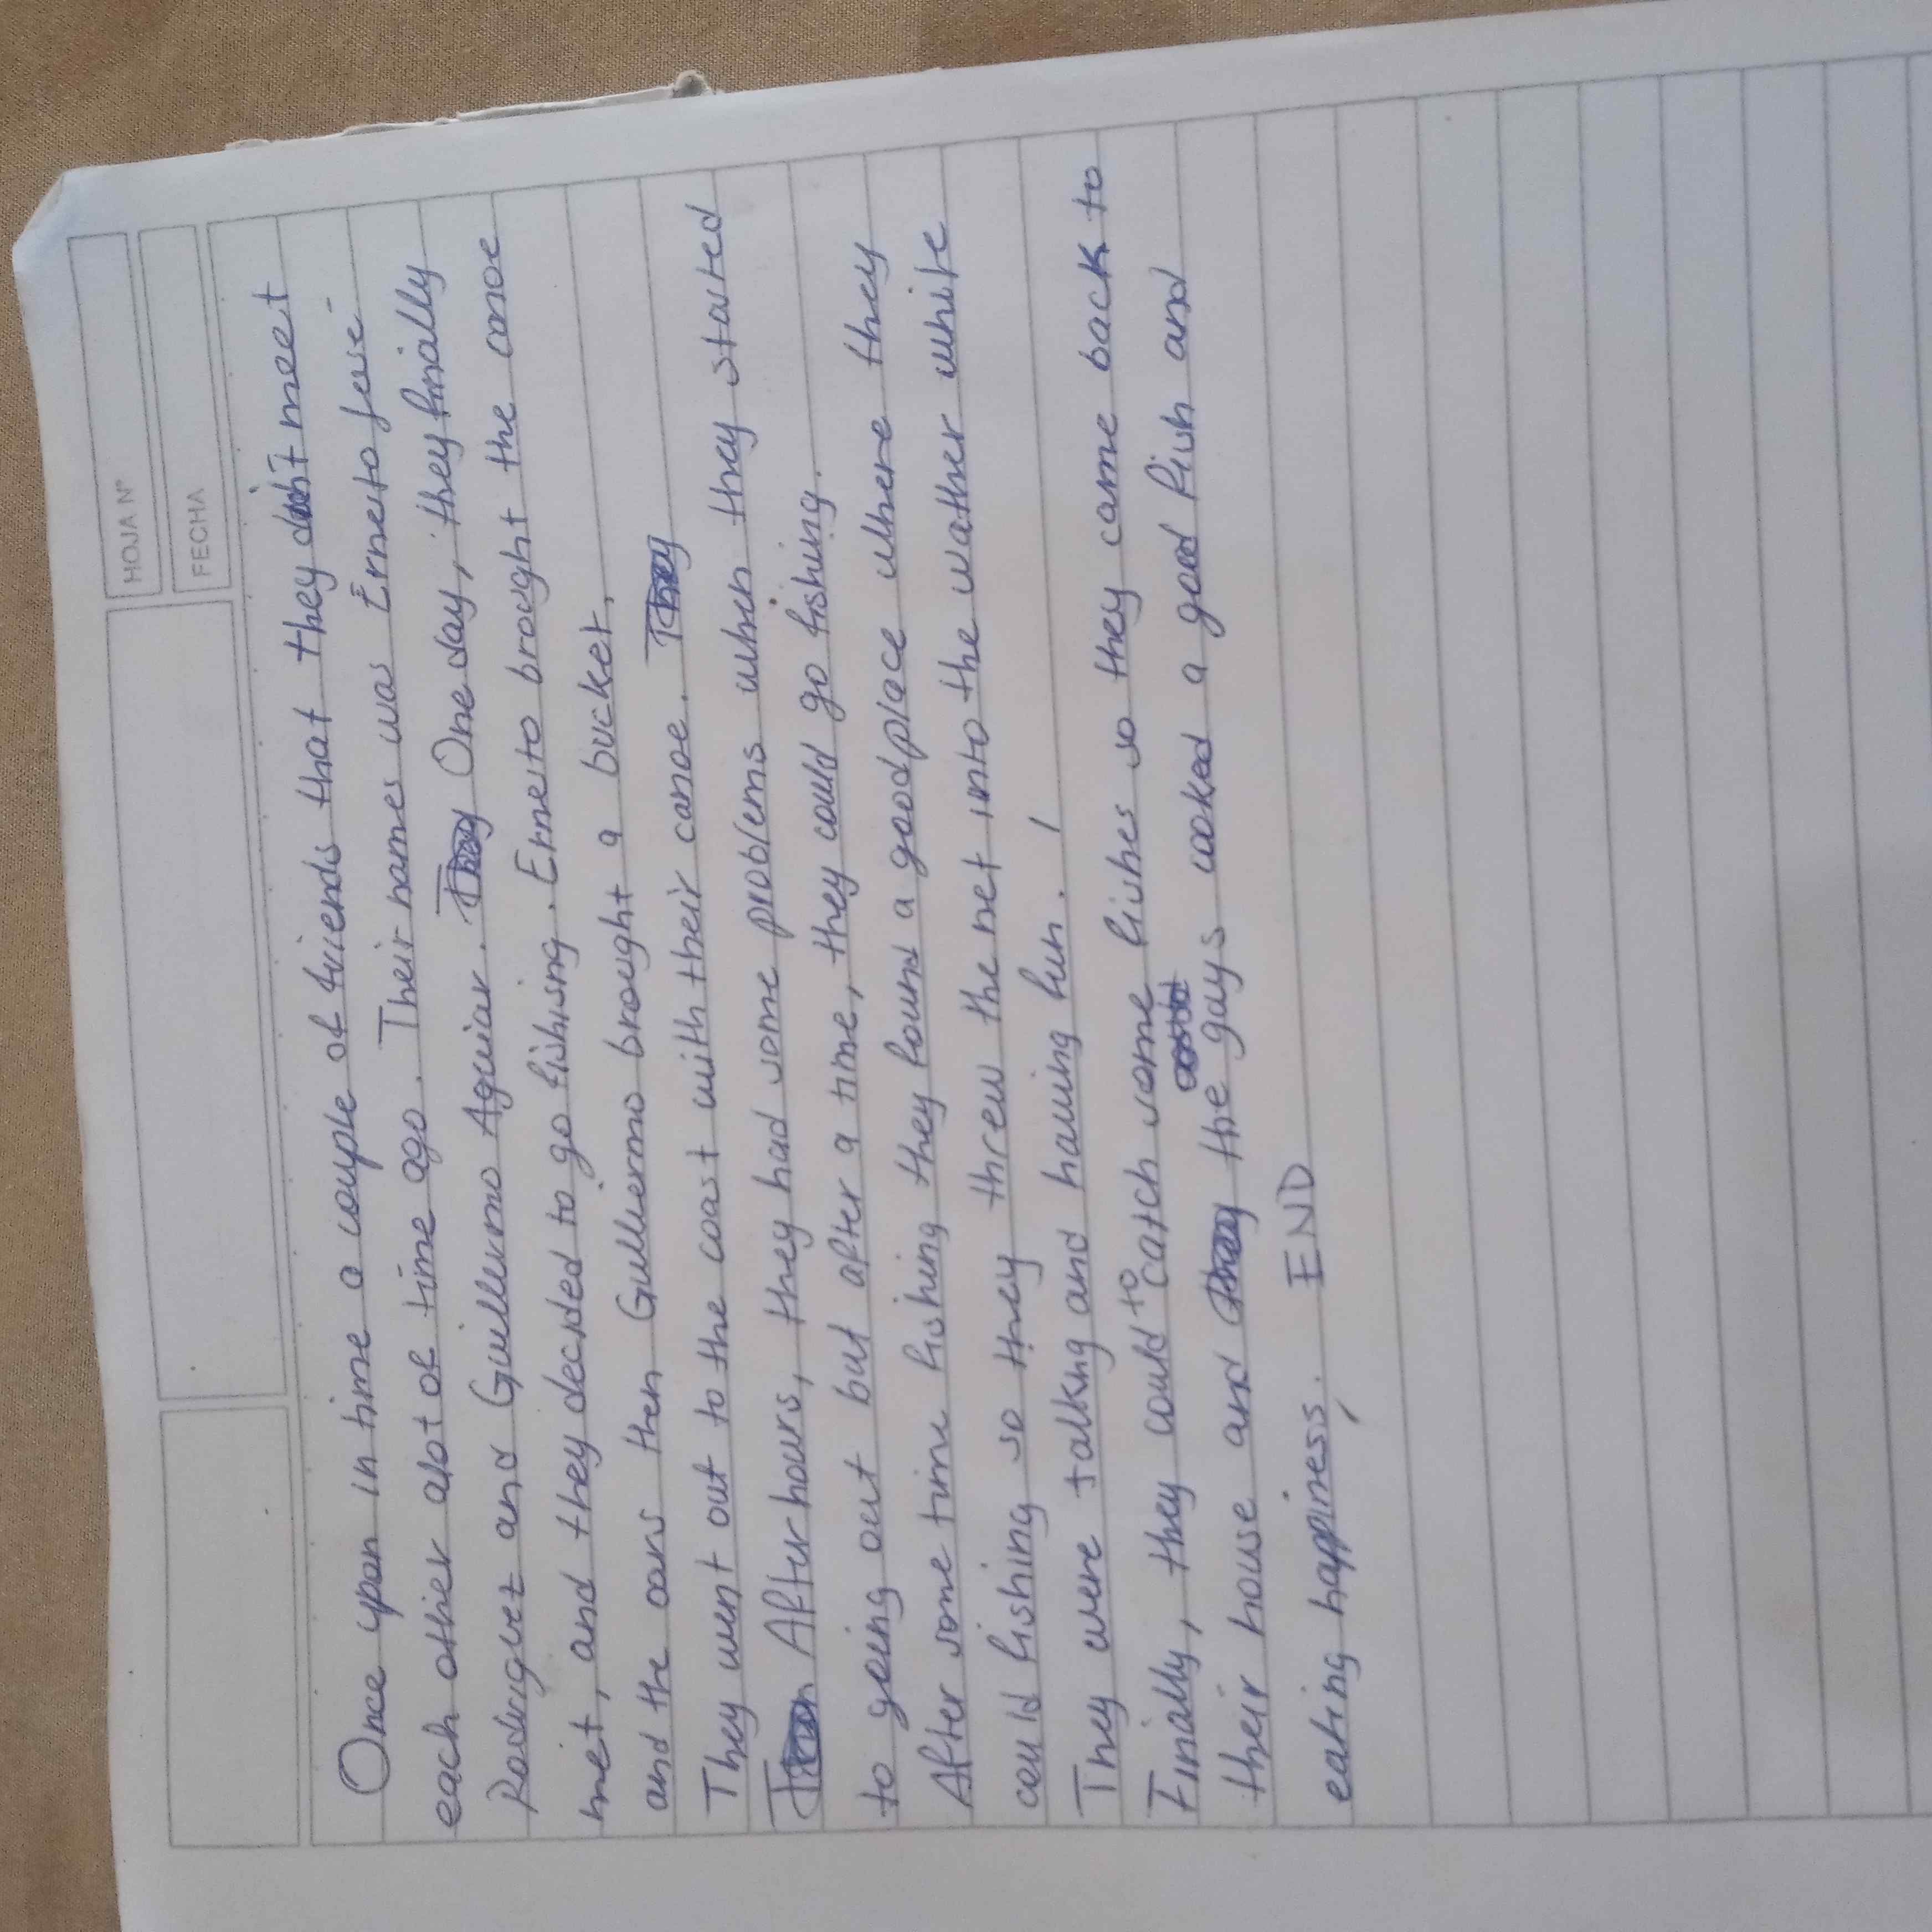 HOJA Nº
FECHA
Once upon in time a couple of friends that they didn't meet
each other alot of time ago. Their names was Ernesto Jose
Rodriguez and Guillermo Aguiar. One day, they finally
met, and they decided to go fishing. Ernesto brought the canoe
and the oars then Guillermo brought a bucket.
They went out to the coast with their canoe. They
After hours, they had some problems when they started
to going out but after a time, they could go fishing.
After some time fishing they found a good place where they
could fishing so they threw the net into the wather white
They were talking and having fun.
Finally, they could to catch some fishes so they came back to
their house and the guys cooked a good fish and
eating happiness. END